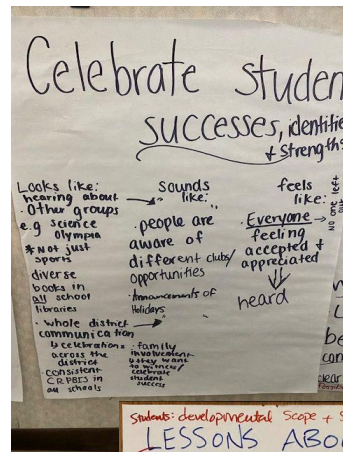 Celebrate Studen
successes, identitie
+ Strengths
Looks like:
hearing about
• Other groups
e.g science
Olympia
* Not just
sports
diverse
books in
all school
libraries
• whole district
communication
↳ celebrations
across the
district
• consistent
CRPBIS in
all schools
Sounds
like:
" "
• people are
aware of
different clubs/
opportunities
• Annancements of
Holidays
• family
involvement
↳ they want
to witness/
celebrate
student
success
feels
like:
• Everyone →
feeling
accepted +
appreciated
heard
No one left
Students: developmental Scope + S
LESSONS ABO